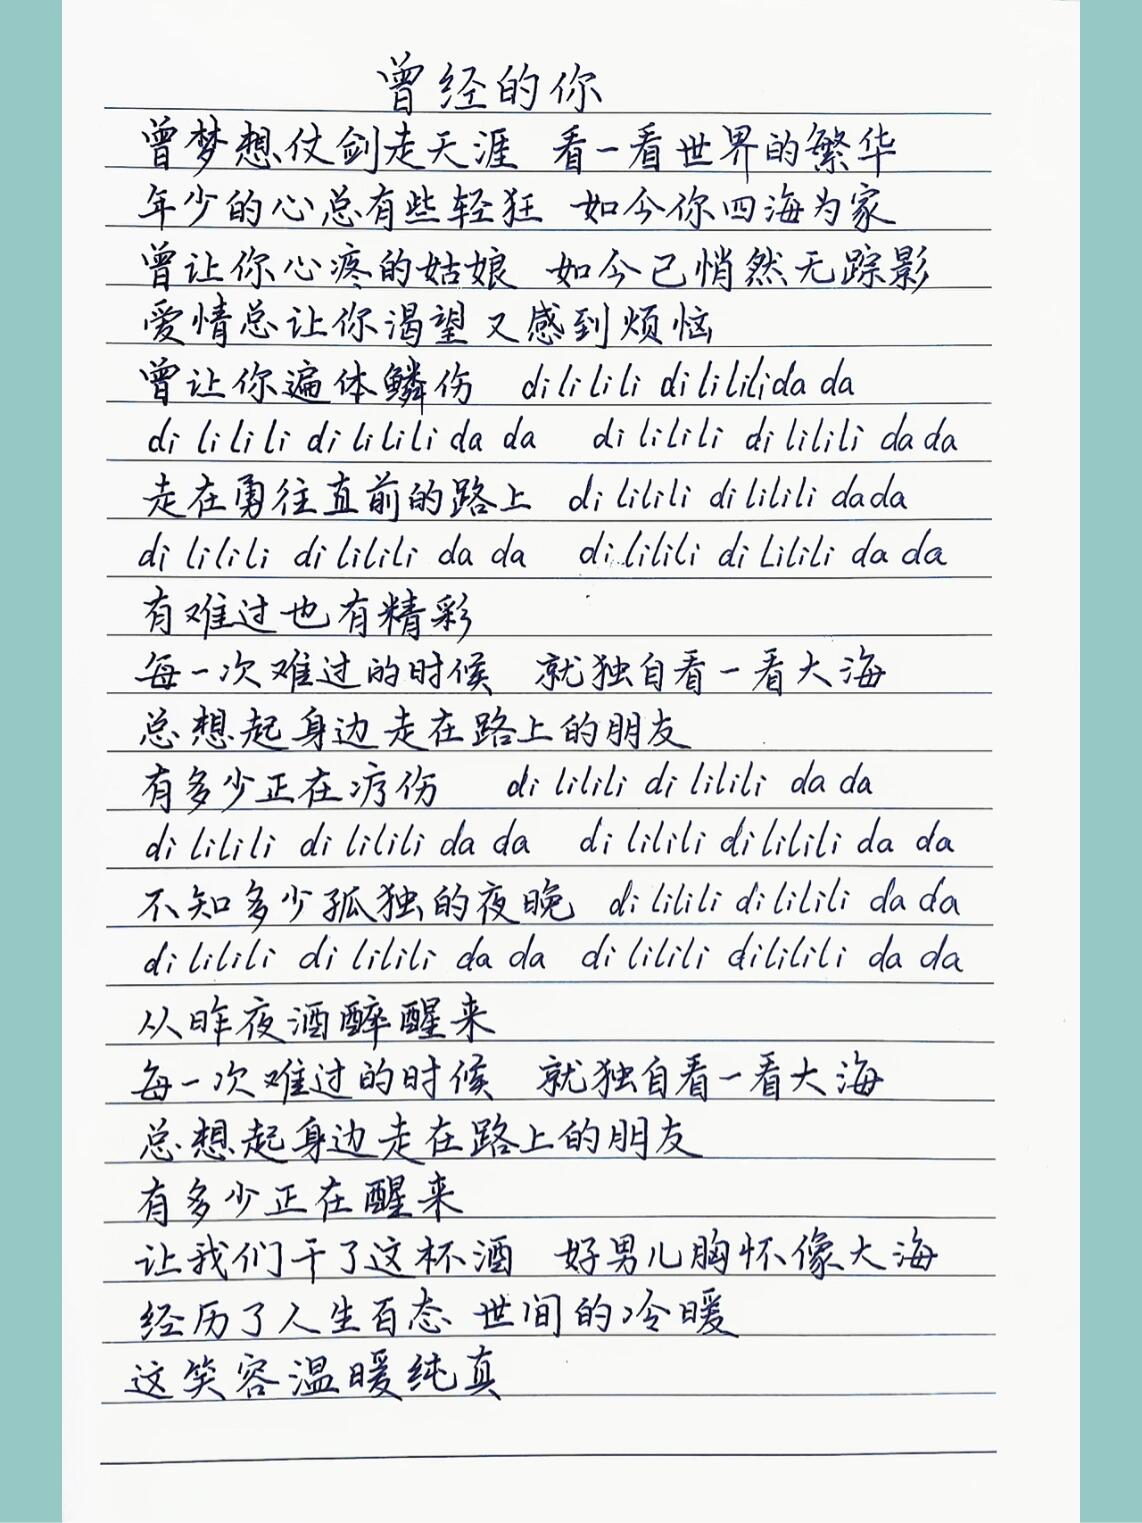 曾经的你
曾梦想仗剑走天涯 看一看世界的繁华
年少的心总有些轻狂 如今你四海为家
曾让你心疼的姑娘 如今已悄然无踪影
爱情总让你渴望又感到烦恼
曾让你遍体鳞伤 di li li li di li li li da da
di li li li di li li li da da di li li li di li li li da da
走在勇往直前的路上 di lilili di lilili dada
di lilili di lilili da da di lilili di lilili da da
有难过也有精彩
每一次难过的时候 就独自看一看大海
总想起身边走在路上的朋友
有多少正在疗伤 di lilili di lilili da da
di lilili di lilili da da di lilili di lilili da da
不知多少孤独的夜晚 di lilili di lilili da da
di lilili di lilili da da di lilili di lilili da da
从昨夜酒醉醒来
每一次难过的时候 就独自看一看大海
总想起身边走在路上的朋友
有多少正在醒来
让我们干了这杯酒 好男儿胸怀像大海
经历了人生百态 世间的冷暖
这笑容温暖纯真